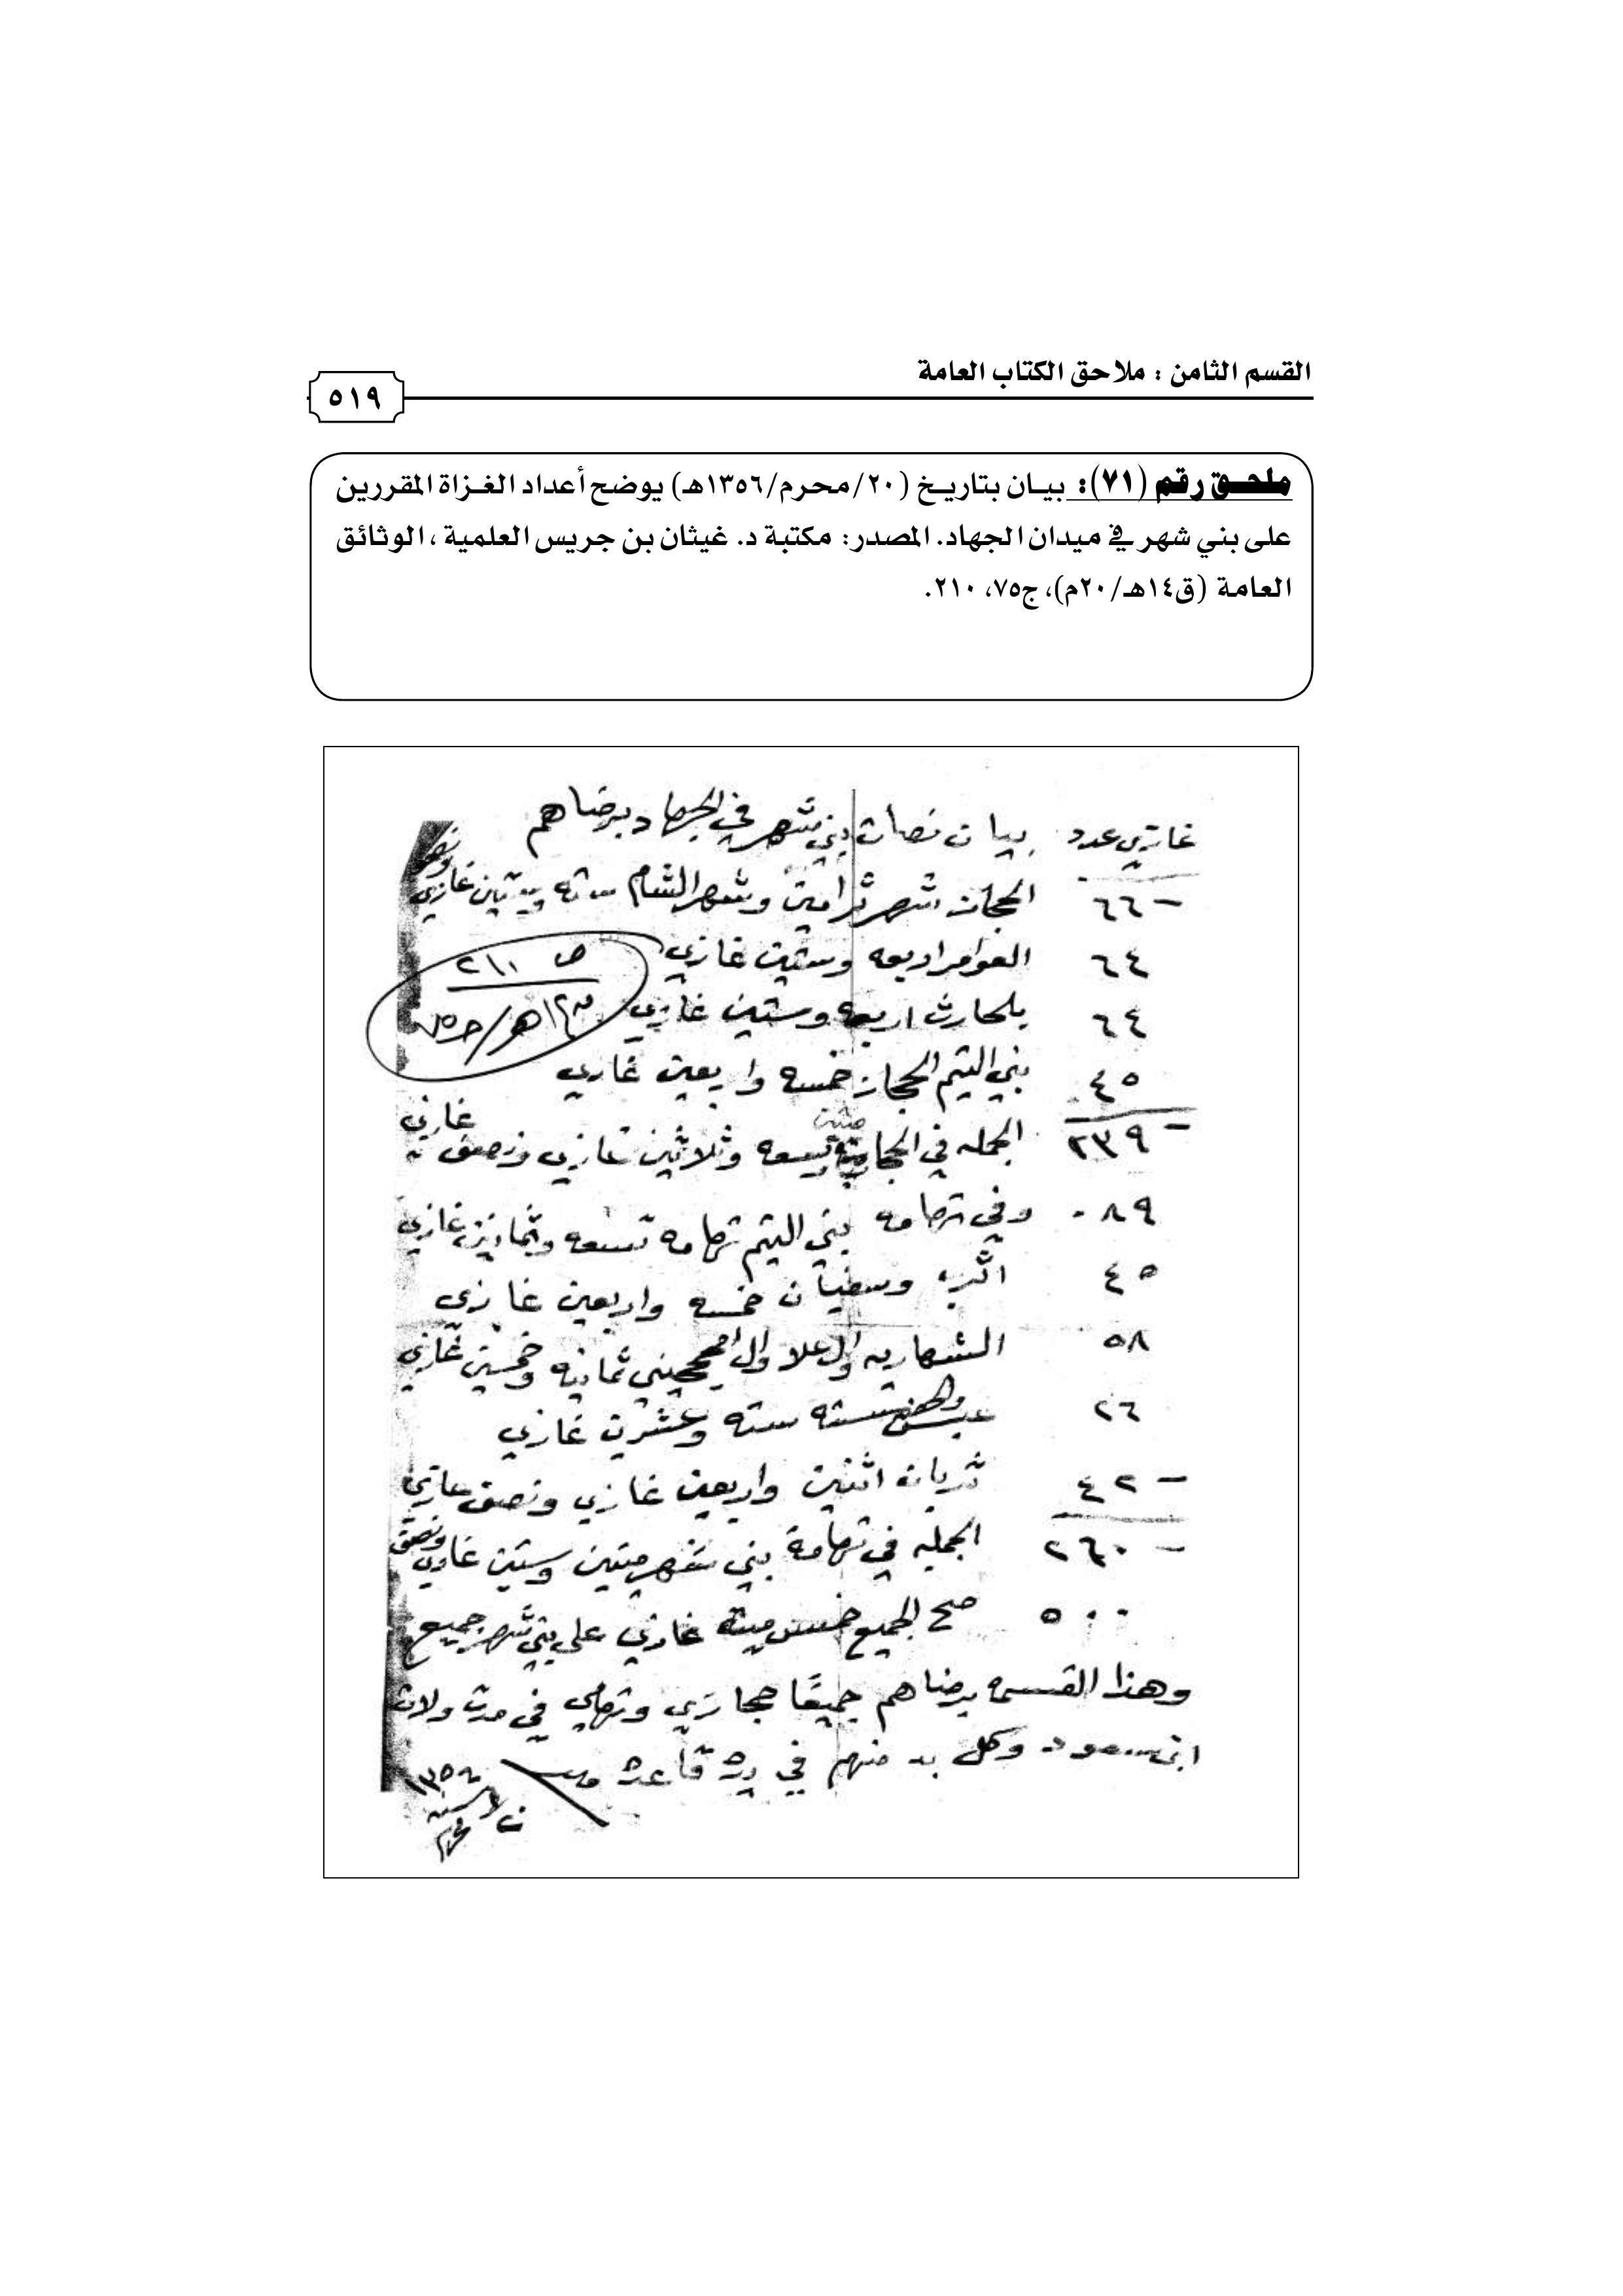 القسم الثامن : ملاحق الكتاب العامة
٥١٩
ملحق رقم (٧١): بيان بتاريخ (٢٠/محرم/١٣٥٦هـ) يوضح أعداد الغزاة المقررين
على بني شهر في ميدان الجهاد. المصدر: مكتبة د. غيثان بن جريس العلمية ، الوثائق
العامة (ق١٤هـ/٢٠م)، ج٧٥، ٢١٠.
غازي عدد بيان نصات بني شهر في الجهاد برضاهم
٦٦ - الحجاز شهر ثرامين وشهر الشام سته وستين غازي ونصف
٦٤ العوامر اربعه وستين غازي
٦٤ بلحارث اربعه وستين غازي
٤٥ بني التيم الحجاز خمسه واربعين غازي
٢٣٩ - الجمله في الحجاز ميتين تسعه وثلاثين غازي ونصف غازي
٠٨٩ وفي تهامه بني التيم تهامه تسعه وثمانين غازي
٤٥ اثرب وسفيان خمسه واربعين غازي
٥٨ الشهاريه وال علا وال ثمانيه وخمسين غازي
٢٦ سته وعشرين غازي
٤٢ - ثربان اثنين واربعين غازي ونصف غازي
٢٦٠ - الجمله في تهامة بني شهر ميتين وستين غازي ونصف
٥٠٠ صح الجميع خمس مية غازي على بني شهر جميع
وهذا القسمه برضاهم جميعًا حجازي وتهامي في مدت ولات
ابن سعود وكل بد منهم في يده قاعده
١٣٥٦